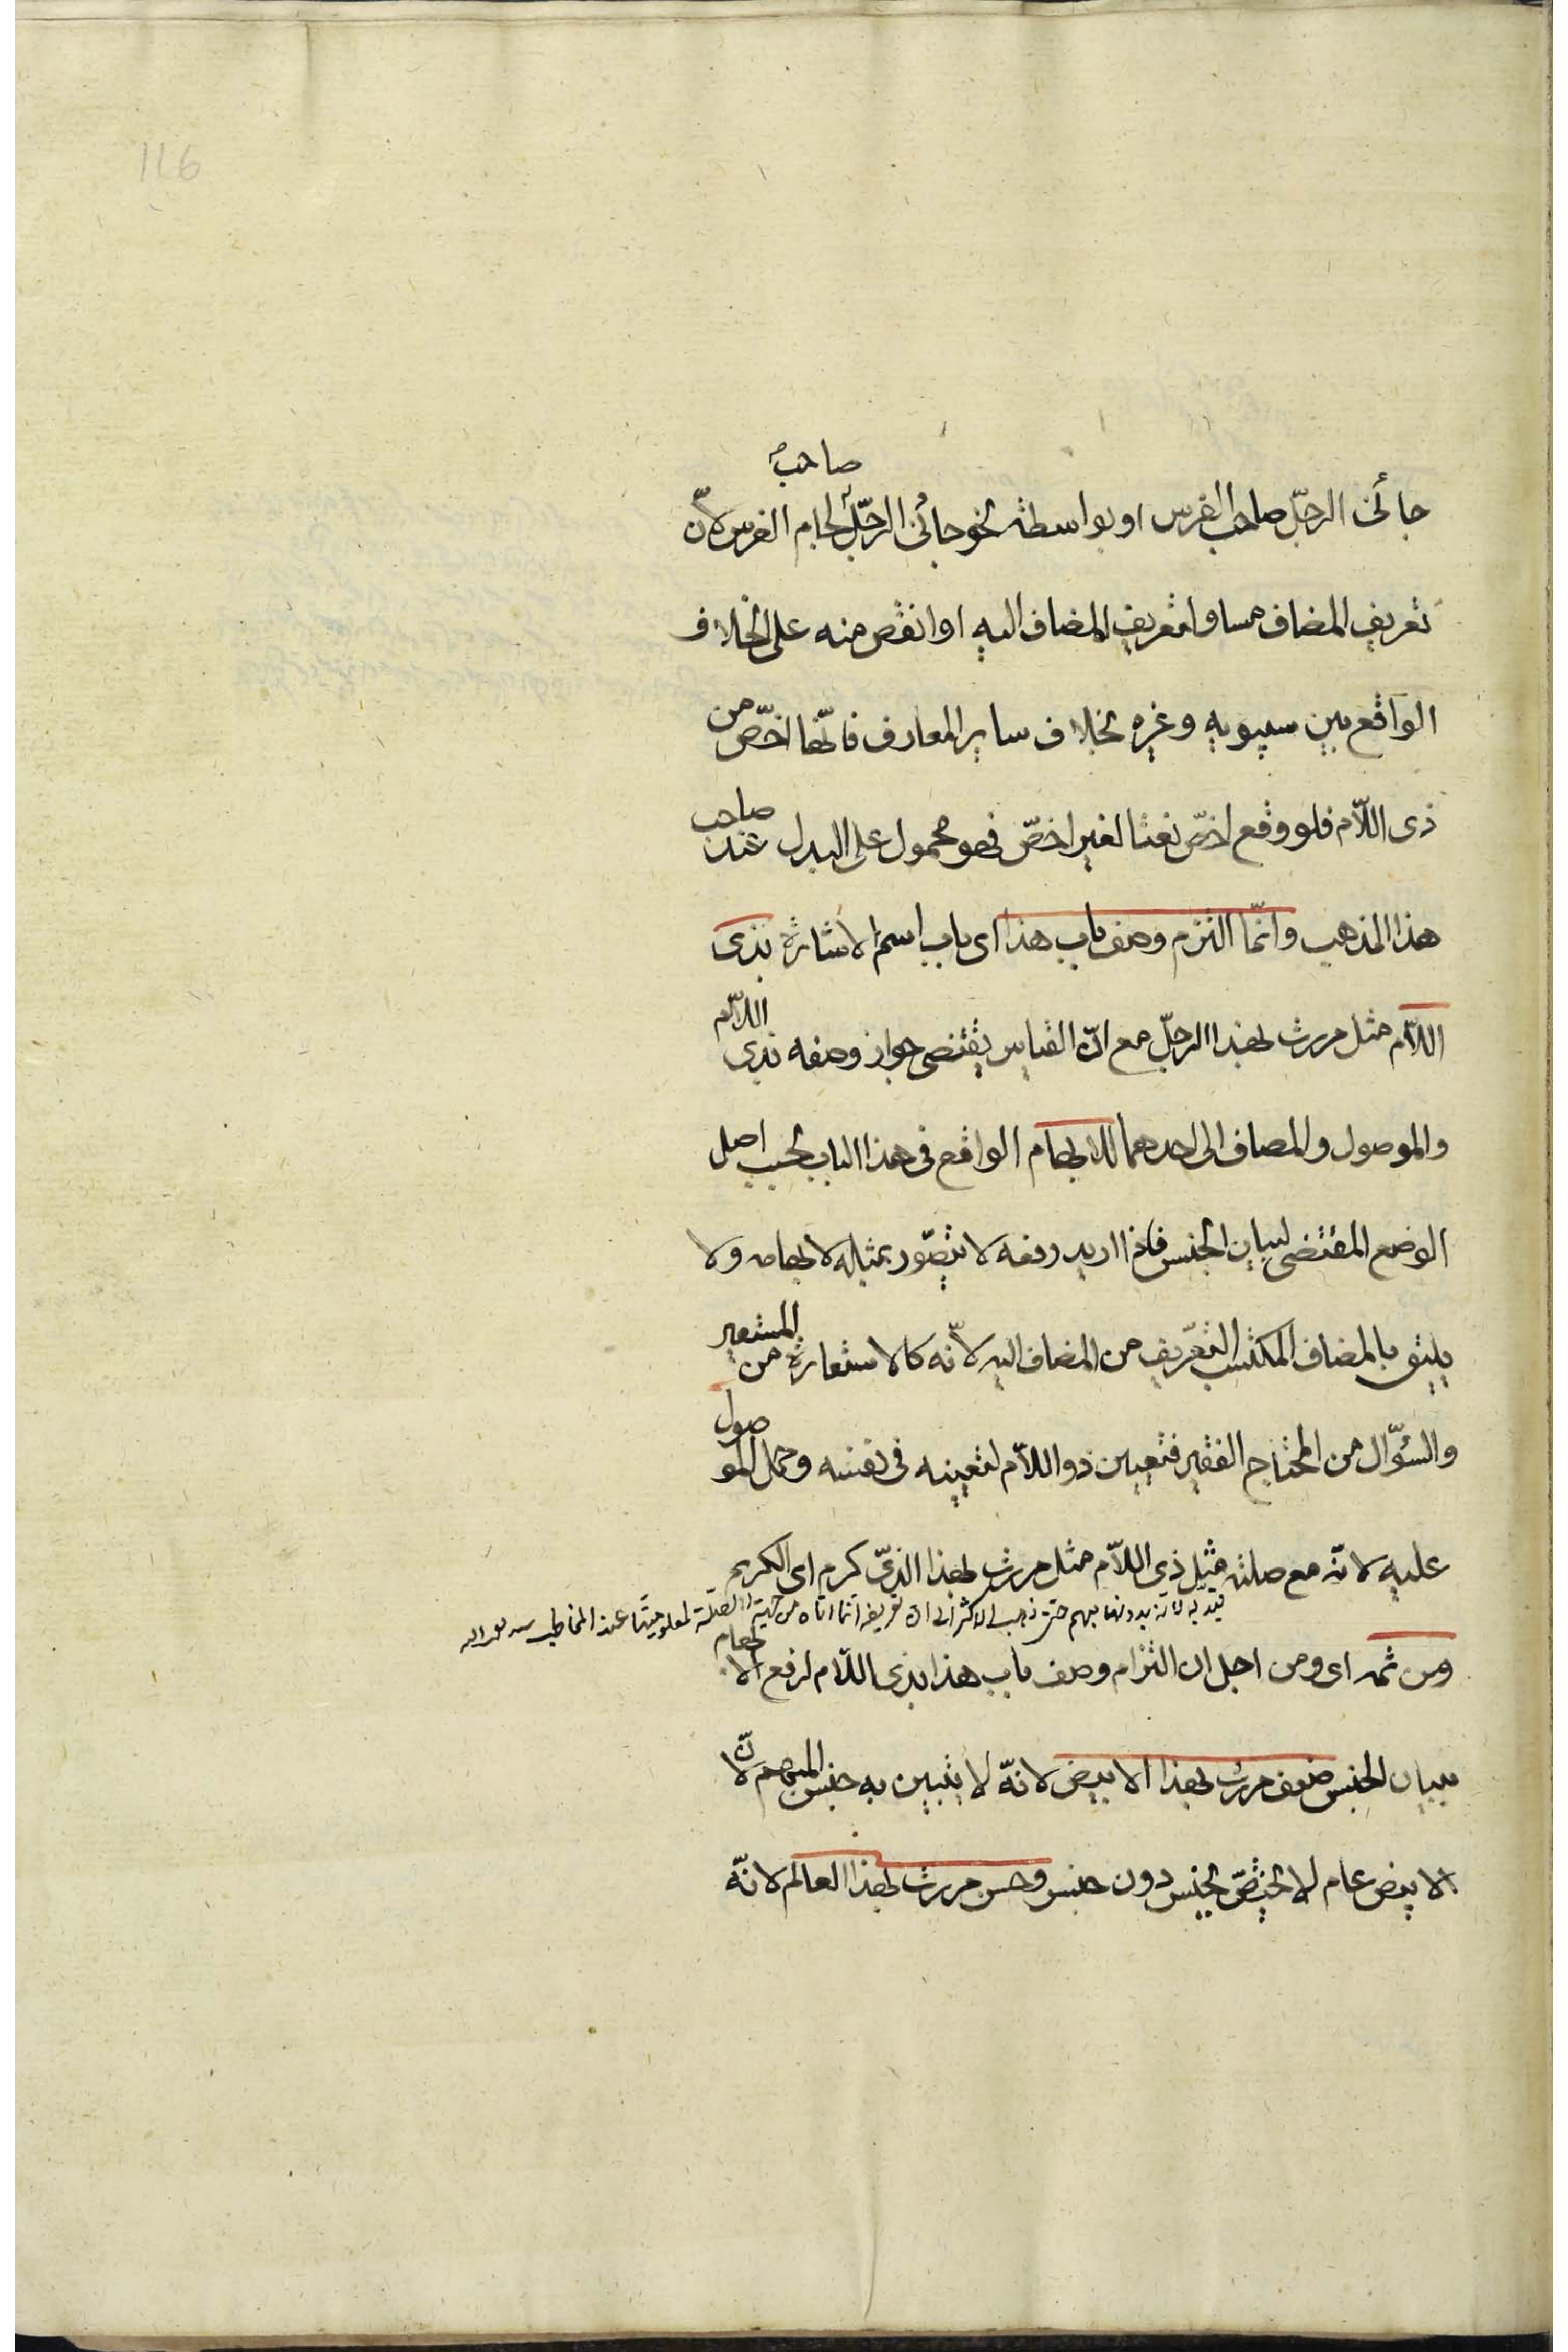 116
جائنى الرجل صاحب الفرس او بواسطة نحو جائنى الرجل صاحب لجام الفرس لانّ
تعريف المضاف مساو لتعريف المضاف اليه او انقص منه على الخلاف
الواقع بين سيبويه وغيره بخلاف ساير المعارف فانّها اخصّ من
ذى اللّام فلو وقع اخصّ نعتا لغير اخصّ فهو محمول على البدل عند صاحب
هذا المذهب وانّما التزم وصف باب هذا اى باب اسم الاشارة بذى
اللّام مثل مررت بهذا الرجل مع انّ القياس يقتضى جواز وصفه بذى اللّام
والموصول والمضاف الى احدهما للابهام الواقع فى هذا الباب بحسب اصل
الوضع المقتضى لبيان الجنس فاذا اريد رفعه لا يتصوّر بمثله لابهامه ولا
يليق بالمضاف المكتسب التعريف من المضاف اليه لانّه كالاستعارة من المستعير
والسؤّال من المحتاج الفقير فتعيين ذو اللّام لتعينه فى نفسه وحمل الموصول
عليه لانّه مع صلته مثل ذى اللّام مثل مررت بهذا الذى كرم اى الكريم
قيد به لانه بدونها مبهم حتى ذهب الاكثر الى ان تعريفه انما اتاه من جهة الصلة لمعلوميتها عند المخاطب
ومن ثمه اى ومن اجل ان التزام وصف باب هذا بذى اللّام لرفع الابهام
ببيان الجنس ضعف مررت بهذا الابيض لانّه لا يتبين به جنس المبهم لانّ
الابيض عام لا يختصّ بجنس دون جنس وحسن مررت بهذا العالم لانّه